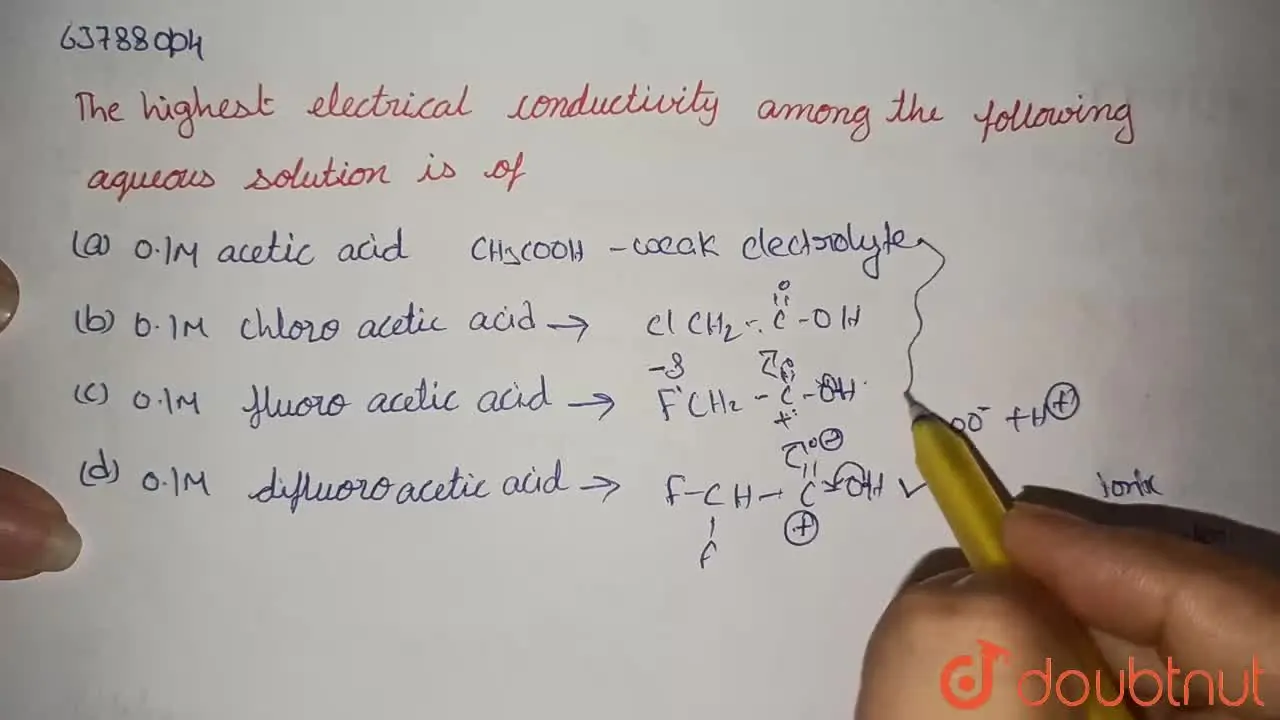 63788004
The highest electrical conductivity among the following
aqueous solution is of
(a) 0.1M acetic acid CH3COOH - weak electrolyte
(b) 0.1M chloro acetic acid → Cl CH2 - C - OH
O
(c) 0.1M fluoro acetic acid → F CH2 - C - OH
-δ O
+
COO⁻ + H⊕
(d) 0.1M difluoro acetic acid → F - CH - C - OH ✓
O ⊖
F
⊕
ionic
doubtnut